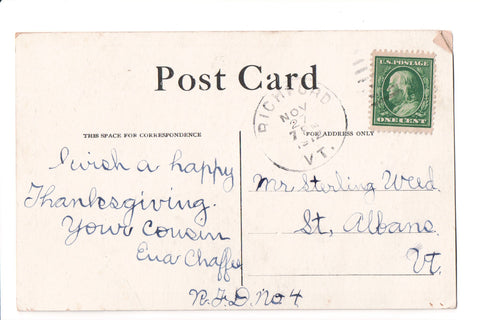 Post Card
U.S. POSTAGE
ONE CENT
RICHFORD
NOV
1912
VT.
THIS SPACE FOR CORRESPONDENCE
FOR ADDRESS ONLY
I wish a happy
Thanksgiving.
Your Cousin
Chaffee
Mr Sterling Weed
St, Albans.
Vt.
R.F.D. No 4